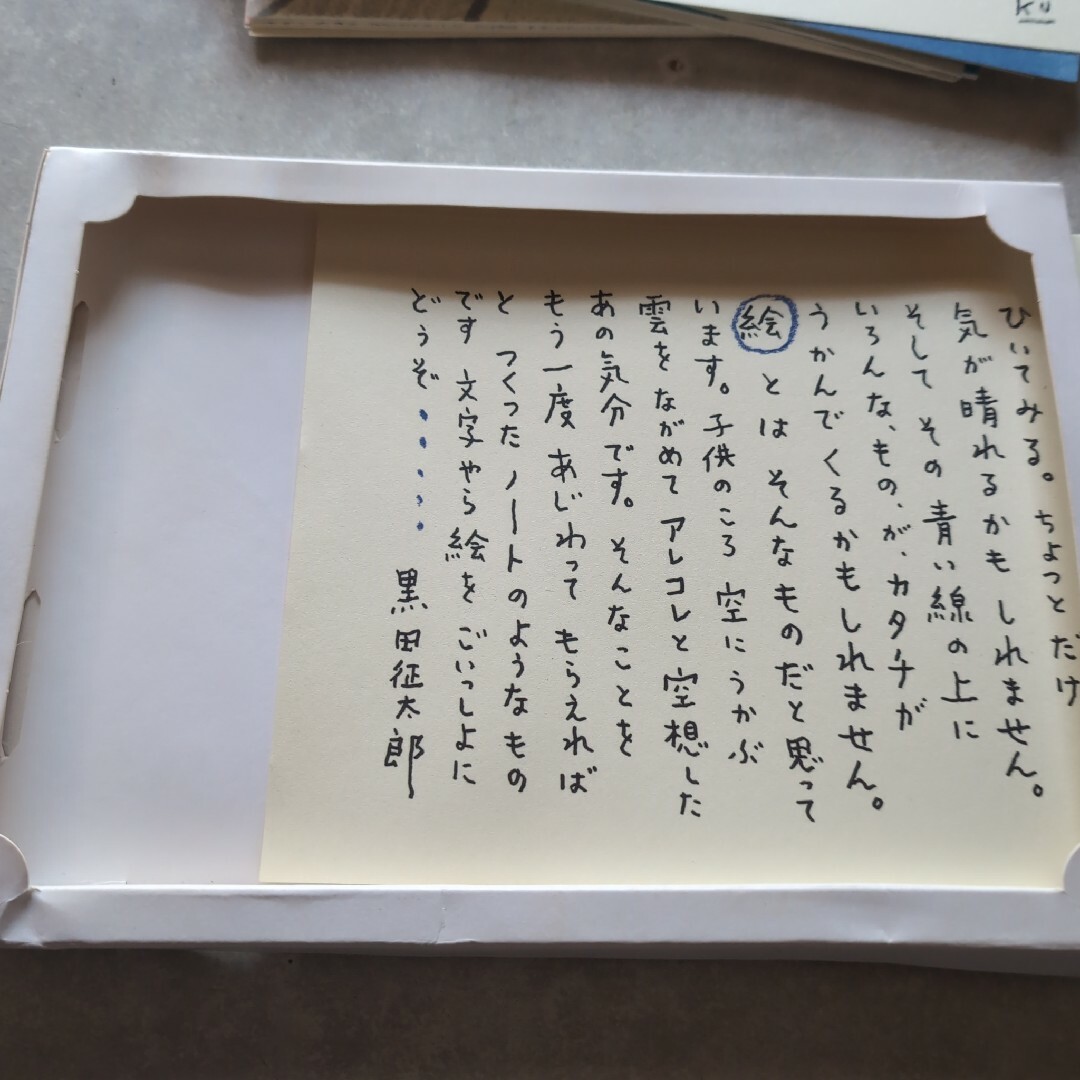 ひいてみる。ちょっとだけ
気が晴れるかもしれません。
そして その青い線の上に
いろんな、もの、が、カタチが
うかんでくるかもしれません。
絵とは そんなものだと思って
います。子供のころ 空にうかぶ
雲をながめて アレコレと空想した
あの気分です。そんなことを
もう一度 あじわって もらえれば
と つくった ノートのようなもの
です 文字やら絵を ごいっしょに
どうぞ・・・・・
黒田征太郎